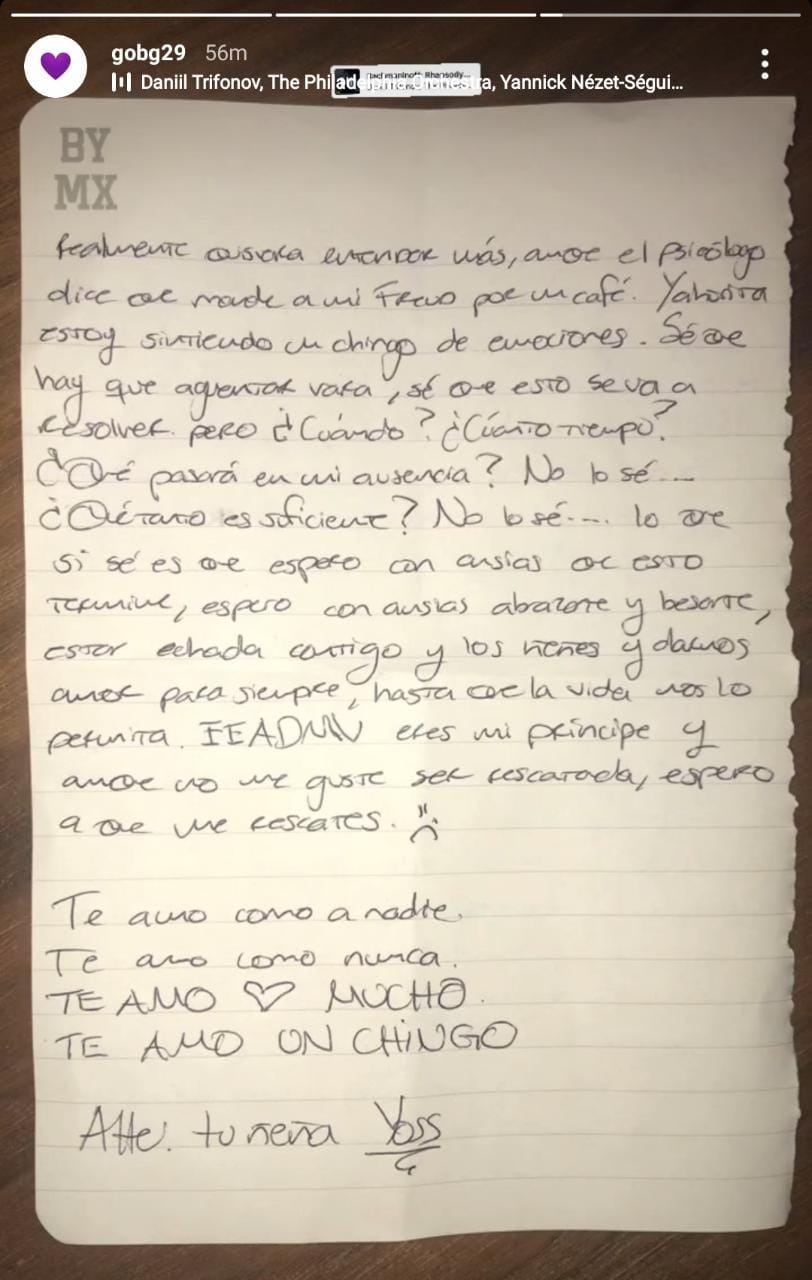 gobg29 56m
Rachmaninoff: Rhapsody...
Daniil Trifonov, The Philadelphia Orchestra, Yannick Nézet-Ségui...
BY
MX
Realmente quisiera entender más, aunque el psicólogo
dice que mande a mi Freud por un café. Y ahorita
estoy sintiendo un chingo de emociones. Sé que
hay que aguantar vara, sé que esto se va a
resolver pero ¿Cuándo? ¿Cuánto tiempo?
¿Qué pasará en mi ausencia? No lo sé...
¿Qué tanto es suficiente? No lo sé.... lo que
si sé es que espero con ansias que esto
termine, espero con ansias abrazarte y besarte,
estar echada contigo y los nenes y darnos
amor para siempre, hasta que la vida nos lo
permita. eres mi príncipe y
aunque no me guste ser rescatada, espero
a que me rescates. :(
Te amo como a nadie.
Te amo como nunca.
TE AMO ♡ MUCHO.
TE AMO UN CHINGO
Atte. tu nena Yoss